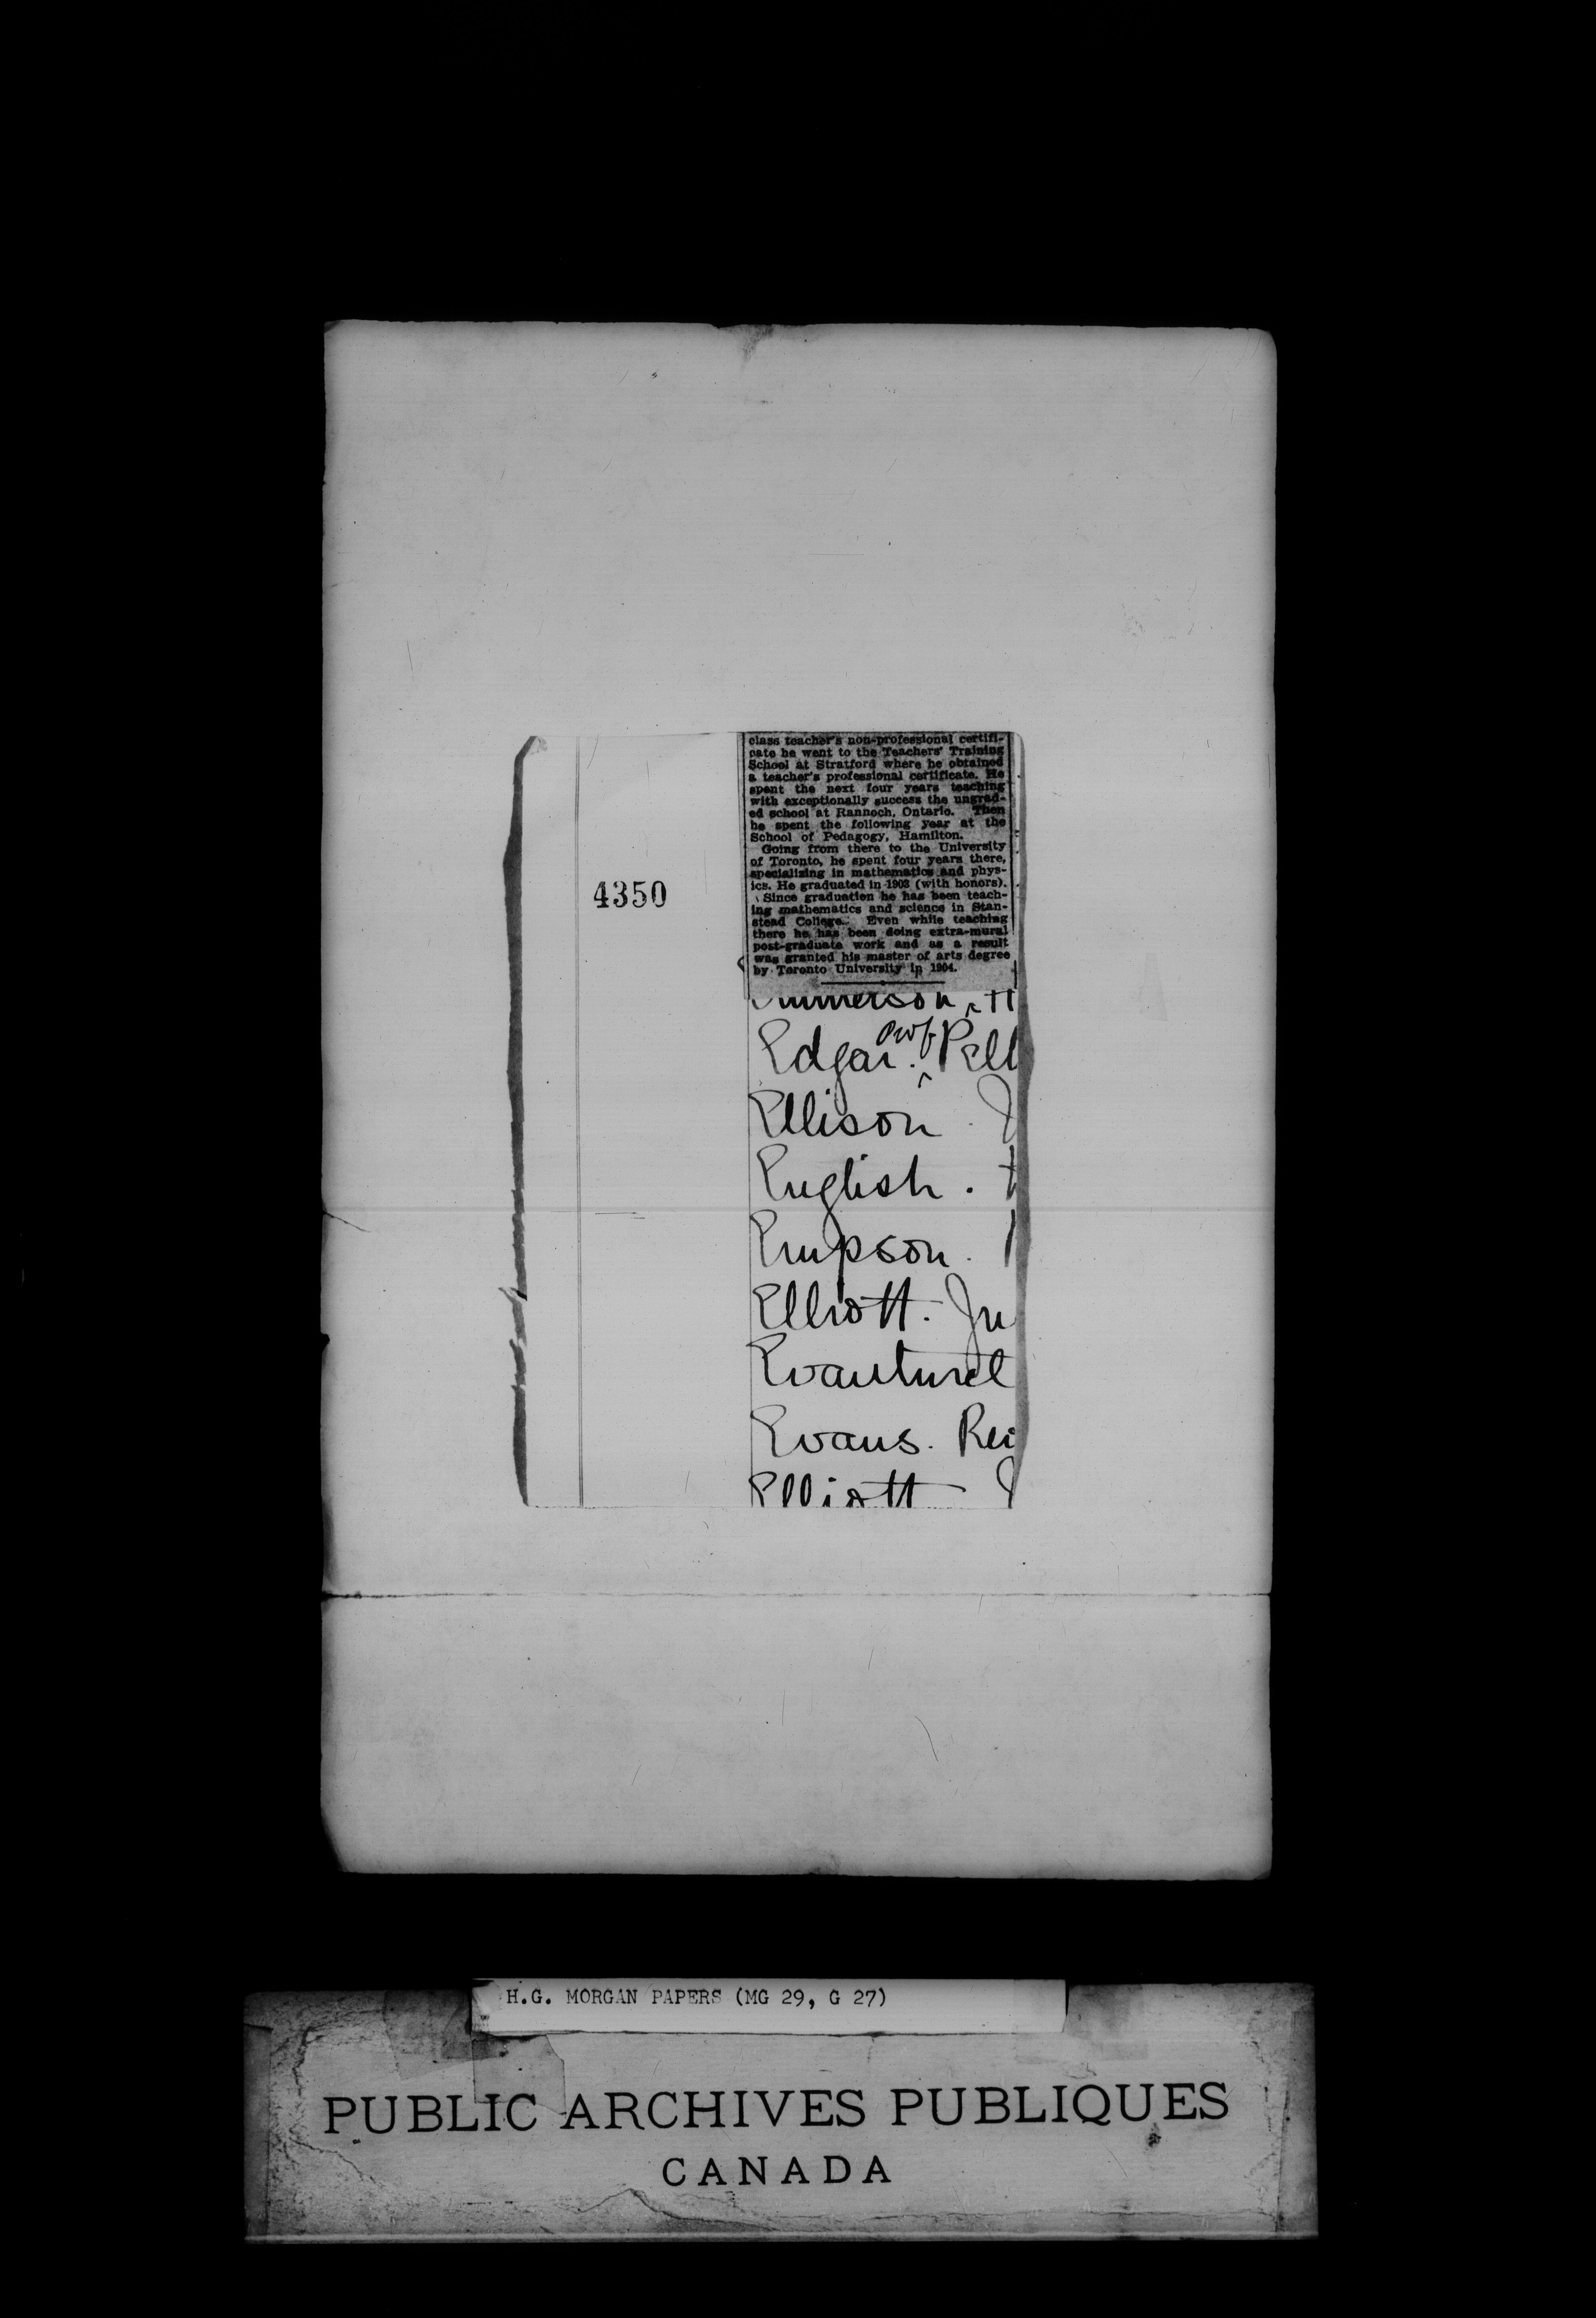 class teacher's non-professional certifi-
cate he went to the Teachers' Training
School at Stratford where he obtained
a teacher's professional certificate. He
spent the next four years teaching
with exceptionally success the ungrad-
ed school at Rannoch, Ontario. Then
he spent the following year at the
School of Pedagogy, Hamilton.
Going from there to the University
of Toronto, he spent four years there,
specializing in mathematics and phys-
ics. He graduated in 1903 (with honors).
Since graduation he has been teach-
ing mathematics and science in Stan-
stead College. Even while teaching
there he has been doing extra-mural
post-graduate work and as a result
was granted his master of arts degree
by Toronto University in 1904.
4350
Edgar. Prof. Pell
Ellison
English.
Empson.
Elliott.
Evanturel
Evans.
Elliott
H.G. MORGAN PAPERS (MG 29, G 27)
PUBLIC ARCHIVES PUBLIQUES
CANADA